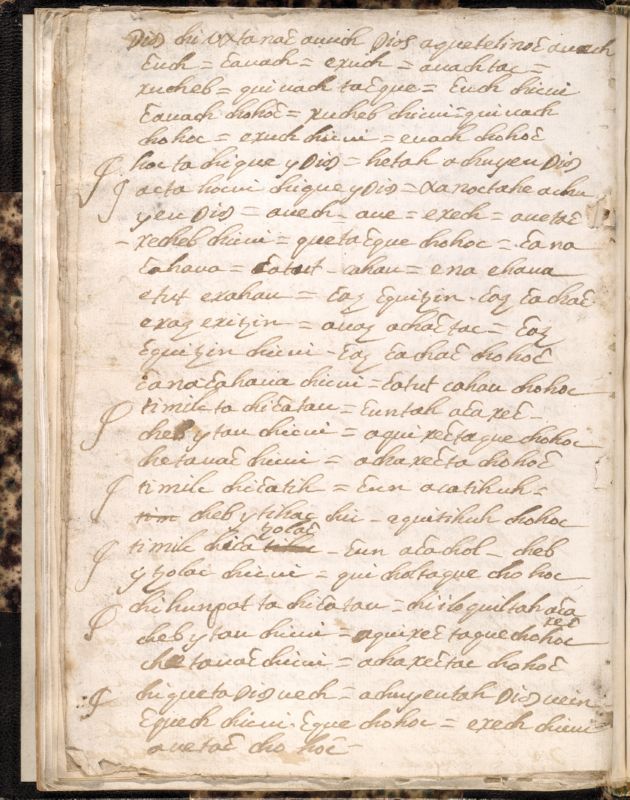 Dios chi uxtanac auuch Dios aquetelinoc auech
Euch = Eauach = exuch = auachtac =
xucheb = quiuach tacque = Euch chicui
Eauach chohoc = xucheb chicui = quiuach
chohoc = exuch chicui = euach chohoc
hoc ta chique y Dios = hetah achuyeu Dios
acta hocui chique y Dios = xanoctahe achu
yeu Dios = auech - aue = exech = auetac
- xecheb chicui = quetacque chohoc = Ea na
Eahaua = Eatut - cahau = ena ehaua
etut exahau = Eaz Equitzin - Eaz Eachac
exaz exitzin = auaz achactac = Eaz
Equitzin chicui - Eaz Eachac chohoc
Eana Eahaua chicui = Eatut cahau chohoc
timilc ta chi Eatau = Euntah acaxec -
cheb y tau chicui = aquixectaque chohoc
chetauac chicui = achaxecta chohoc
timilc chi Eatih = Eun acatihuh =
cheb y tihac chi - aquitihuh chohoc
tzolac
timilc chica - Eun acachol - cheb
y tzolac chicui = quicholtaque chohoc
chi hunpat ta chi Eatau = chisloquiltah aca
xec
cheb y tau chicui = aquixectaque chohoc
chetauac chicui = achaxectac chohoc
chiqueta Dios uech = achuyeutah Dios uein
Equech chicui - Eque chohoc = exech chicui
auetac cho hoc -